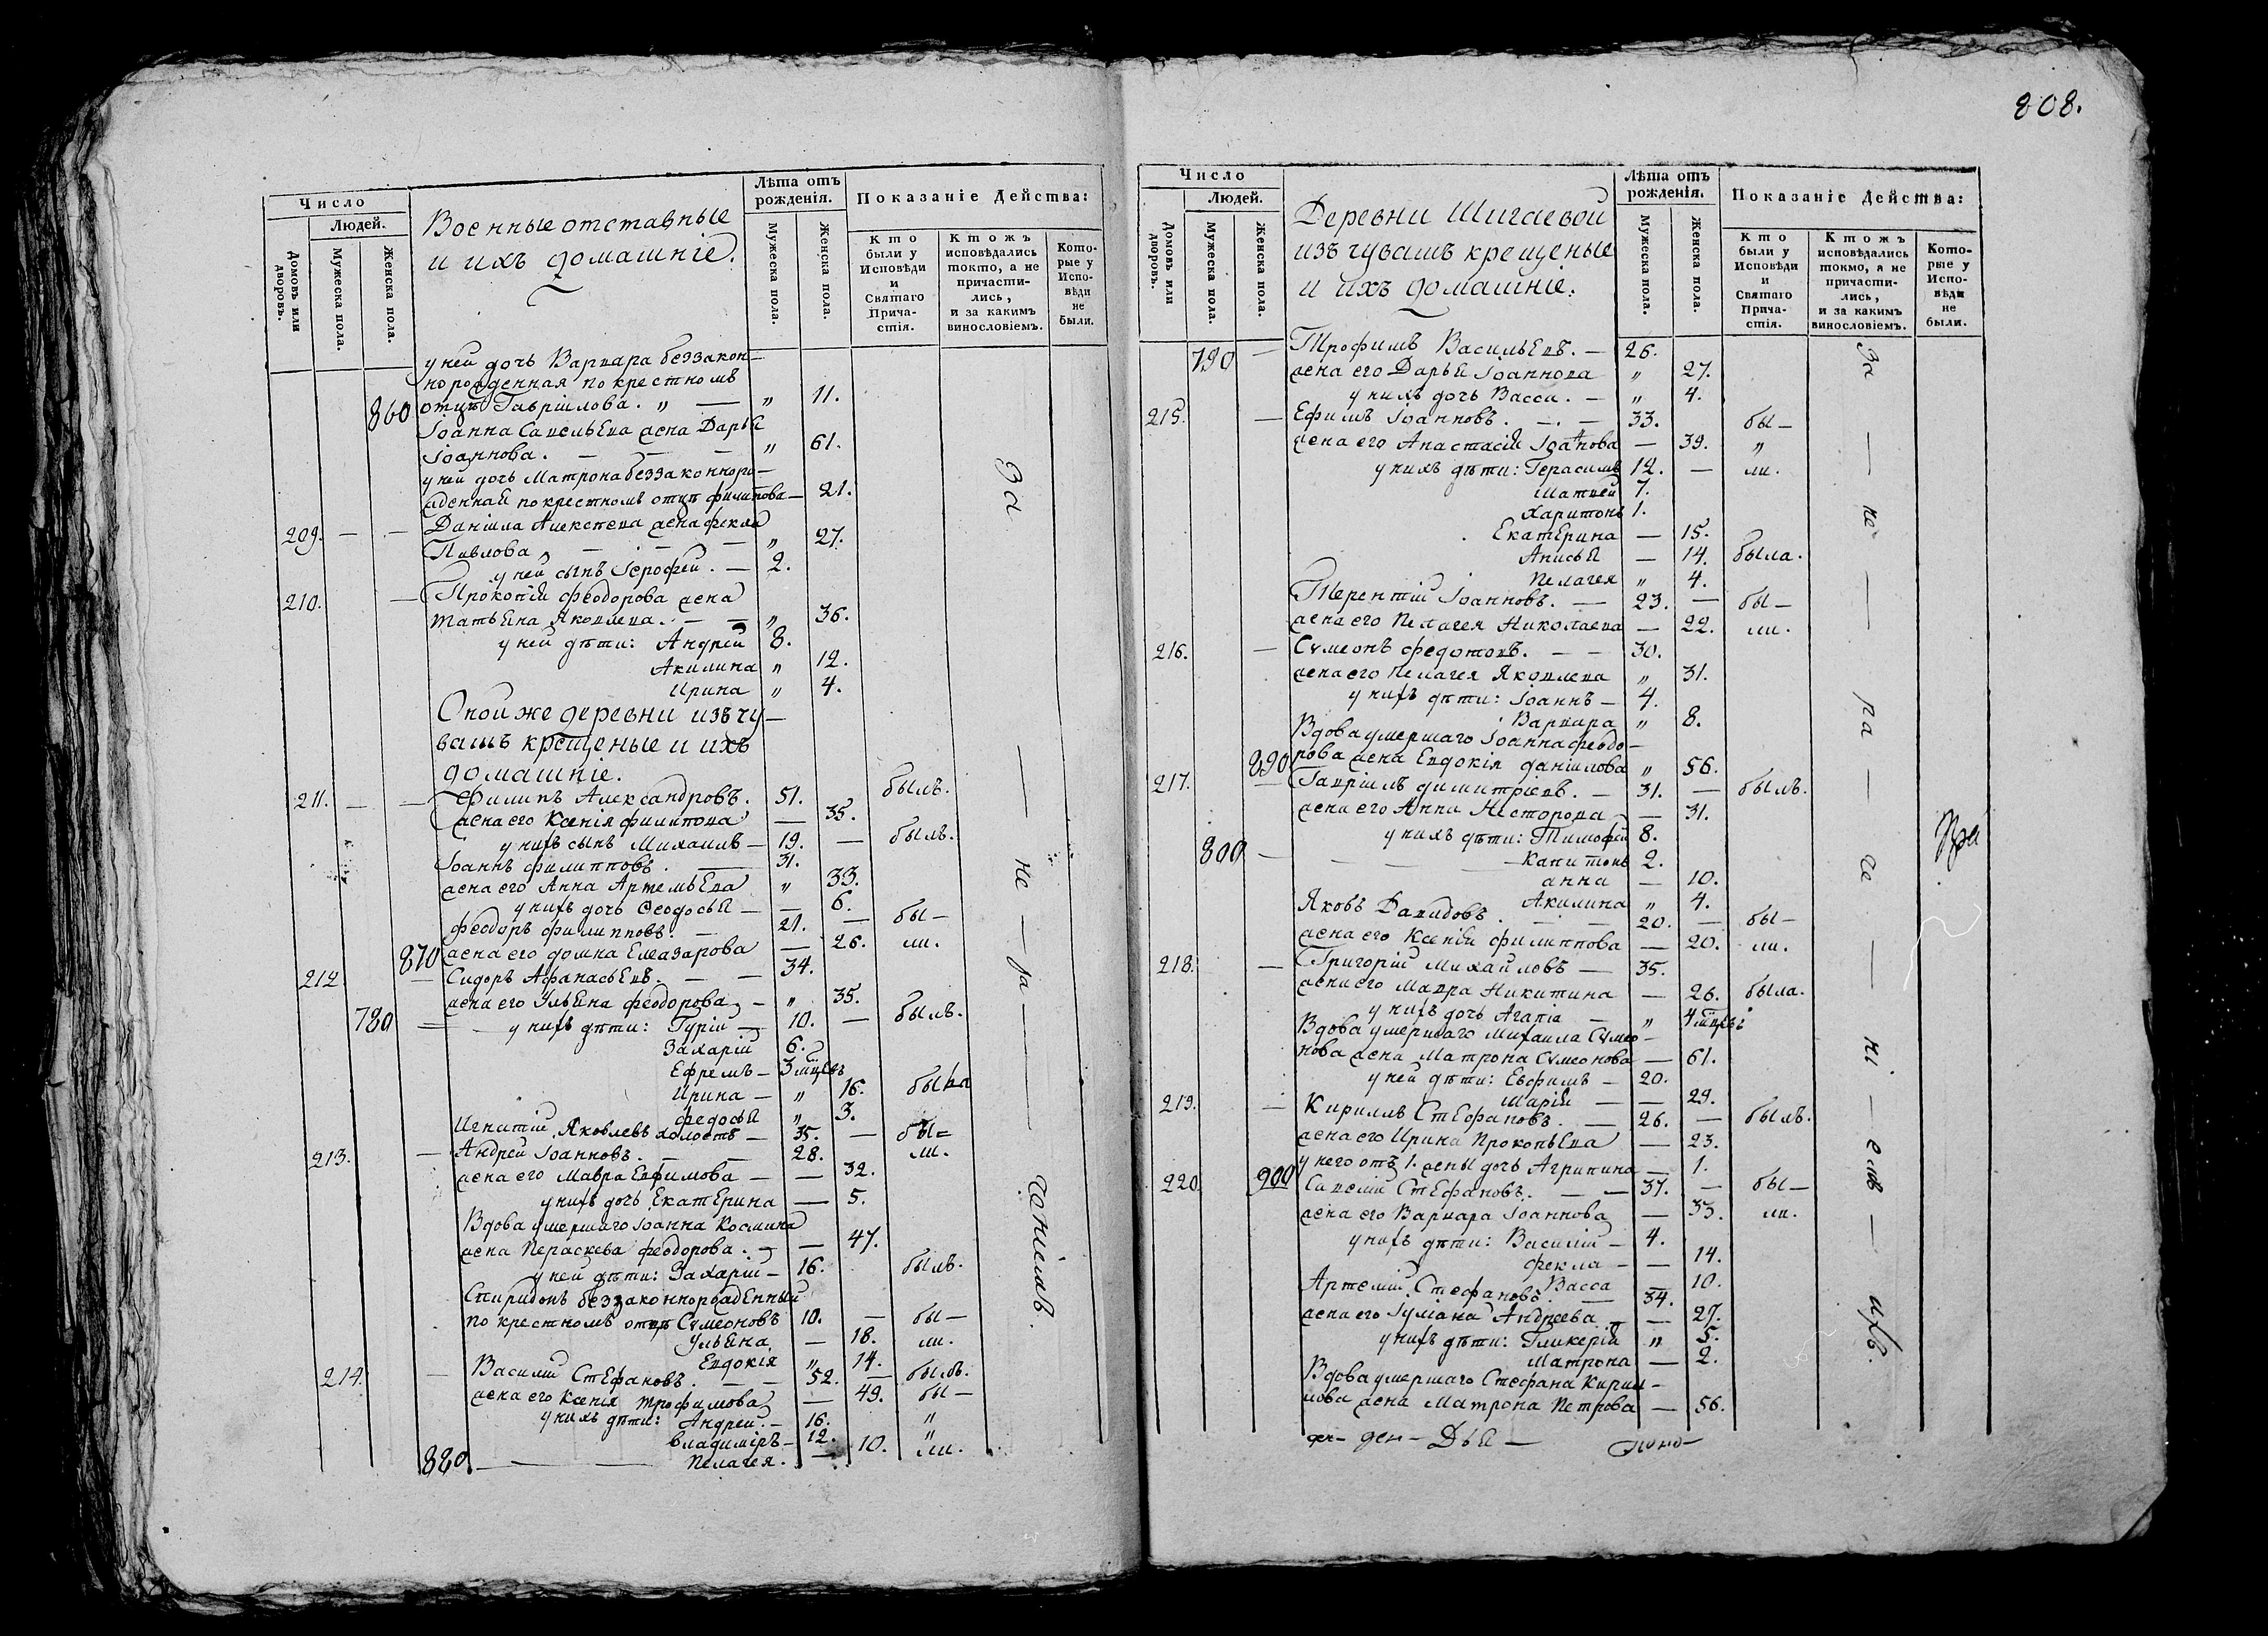 808.
Число
Людей.
Домовъ или дворовъ.
Мужеска пола.
Женска пола.
Военные отставные
и ихъ домашніе.
Лѣта отъ рожденія.
Мужеска пола.
Женска пола.
Показаніе Действа:
Кто были у Исповѣди и Святаго Причастія.
Ктожъ исповѣдались токмо, а не причастились, и за какимъ винословіемъ.
Которые у Исповѣди не были.
у ней дочь Варвара беззакон-
норожденная по крестномъ
860 отцѣ Гавріилова. „ — „ 11.
Іоанна Савельева жена Дарья
Іоаннова. — — — „ 61.
у ней дочь Матрона беззаконноро-
жденная по крестномъ отцѣ Филипова — 21.
209. — — Даніила Алексѣева жена Фекла
Павлова „ — — — „ 27.
у ней сынъ Іерофей. — 2.
210. — Прокопія Феодорова жена
Татьяна Яковлева. — — „ 36.
у ней дѣти: Андрей 8.
Акилина „ 12.
Ирина „ 4.
Оной же деревни изъ чу-
вашъ крещеные и ихъ
домашніе.
211. — — Филипъ Александровъ. 51. былъ.
жена его Ксенія Филипова — 35.
у нихъ сынъ Михаилъ — 19. — былъ.
Іоаннъ Филипповъ. — 31.
жена его Анна Артемьева „ 33.
у нихъ дочь Феодосья — — 6.
Феодоръ Филипповъ. — 21. — бы-
870 жена его Домна Елеазарова — 26. ли.
212 — Сидоръ Афанасьевъ. — — 34.
жена его Ульяна Феодорова — „ 35.
780 — у нихъ дѣти: Гурій — 10. — былъ.
Захарій 6.
Ефремъ — 3 мцевъ
Ирина — „ 16. была
Федосья „ 3.
Игнатій Яковлевъ холостъ — 35. — бы=
213. — Андрей Іоанновъ. — — 28. ли.
жена его Мавра Евфимова — — 32.
у нихъ дочь Екатерина — 5.
Вдова умершаго Іоанна Космина
жена Параскева Феодорова. — — 47.
у ней дѣти: Захарій — 16. былъ.
Спиридонъ беззаконнорожденный
по крестномъ отцѣ Сѵмеоновъ 10. — бы —
Ульяна — 18. ли.
Евдокія „ 14.
214. — Василій Стефановъ. — — 52. — былъ.
жена его Ксенія Трофимова — 49. бы —
у нихъ дѣти: Андрей. — 16. „
Владиміръ — 12. „
880. — — Пелагея. — 10. ли.
За — не — ра — ченіемъ.
Число
Людей.
Домовъ или дворовъ.
Мужеска пола.
Женска пола.
Деревни Шигаевой
изъ чувашъ крещеные
и ихъ домашніе.
Лѣта отъ рожденія.
Мужеска пола.
Женска пола.
Показаніе Действа:
Кто были у Исповѣди и Святаго Причастія.
Ктожъ исповѣдались токмо, а не причастились, и за какимъ винословіемъ.
Которые у Исповѣди не были.
790 — Трофимъ Васильевъ. — 26.
жена его Дарья Іоаннова „ 27.
у нихъ дочь Васса. — „ 4.
215. — Ефимъ Іоанновъ. — . — 33. бы —
жена его Анастасія Іоаннова — 39. „
у нихъ дѣти: Герасимъ 12. — ли.
Матвей 7.
Харитонъ 1.
Екатерина — 15.
Анисья — 14. была.
Пелагея „ 4.
Терентій Іоанновъ. — 23. — бы —
жена его Пелагея Николаева — 22. ли.
216. — Сѵмеонъ Федотовъ. — — 30.
жена его Пелагея Яковлева „ 31.
у нихъ дѣти: Іоаннъ — 4.
Варвара „ 8.
Вдова умершаго Іоанна Феодо-
890 рова жена Евдокія Даніилова „ 56.
217. — Гавріилъ Димитріевъ. — 31. — былъ.
жена его Анна Несторова — 31.
у нихъ дѣти: Тимофей 8.
800 — — Капитонъ 2.
Анна — 10.
Акилина „ 4.
Яковъ Давидовъ. — 20. — бы —
жена его Ксенія Филиппова — 20. ли.
218. — Григорій Михайловъ — 35.
жена его Мавра Никитина — 26. была.
у нихъ дочь Агапія — „ 4 мцевъ
Вдова умершаго Михаила Сѵмео-
нова жена Матрона Сѵмеонова — 61.
у ней дѣти: Евфимъ — 20.
Марія — — 29.
219. — Кириллъ Стефановъ. — 26. — былъ.
жена его Ирина Прокопьева — 23.
у него отъ 1. жены дочь Агрипина — 1.
220. 900 Савелій Стефановъ. — — 37. — бы —
жена его Варвара Іоаннова — 33. ли.
у нихъ дѣти: Василій — 4.
Фекла — — 14.
Васса — 10.
Артемій Стефановъ. — 34.
жена его Іуліана Андреева — 27.
у нихъ дѣти: Гликерія „ 5.
Матрона — 2.
Вдова умершаго Стефана Кирил-
лова жена Матрона Петрова — 56.
За — не — ра — че — ні — емъ — ихъ.